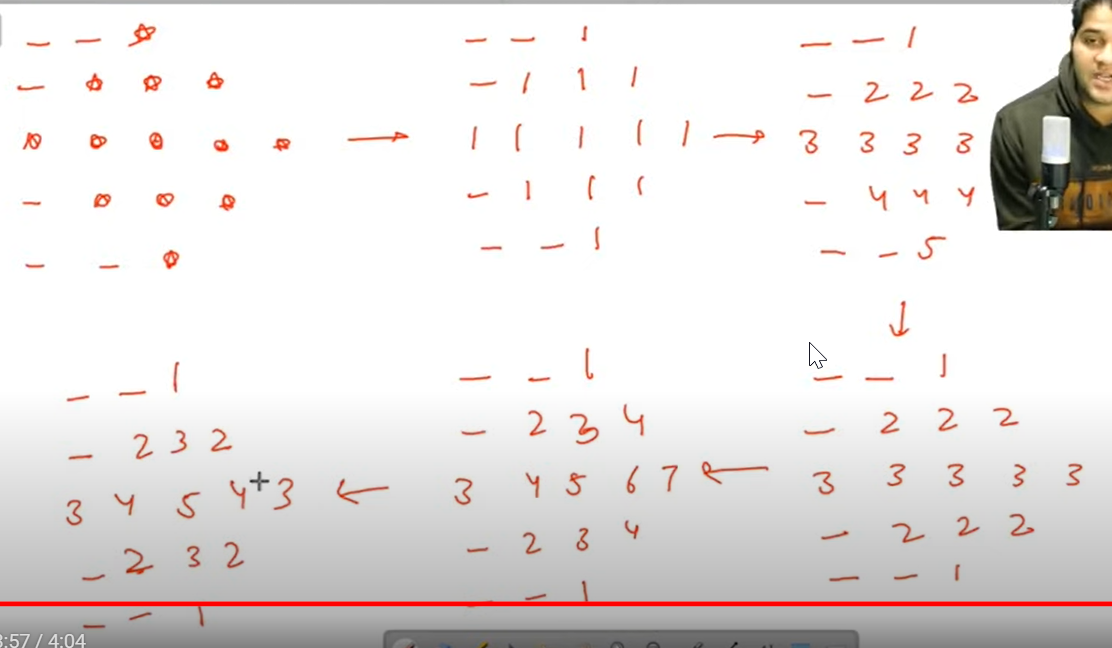 _ _ ☆
_ ☆ ☆ ☆
☆ ☆ ☆ ☆ ☆ →
_ ☆ ☆ ☆
_ _ ☆
_ _ 1
_ 1 1 1
1 1 1 1 1 →
_ 1 1 1
_ _ 1
_ _ 1
_ 2 2 2
3 3 3 3
_ 4 4 4
_ _ 5
↓
_ _ 1
_ 2 2 2
3 3 3 3 3
_ 2 2 2
_ _ 1
_ _ 1
_ 2 3 4
3 4 5 6 7 ←
_ 2 3 4
_ _ 1
_ _ 1
_ 2 3 2
3 4 5 4 3 ←
_ 2 3 2
_ _ 1
3:57 / 4:04